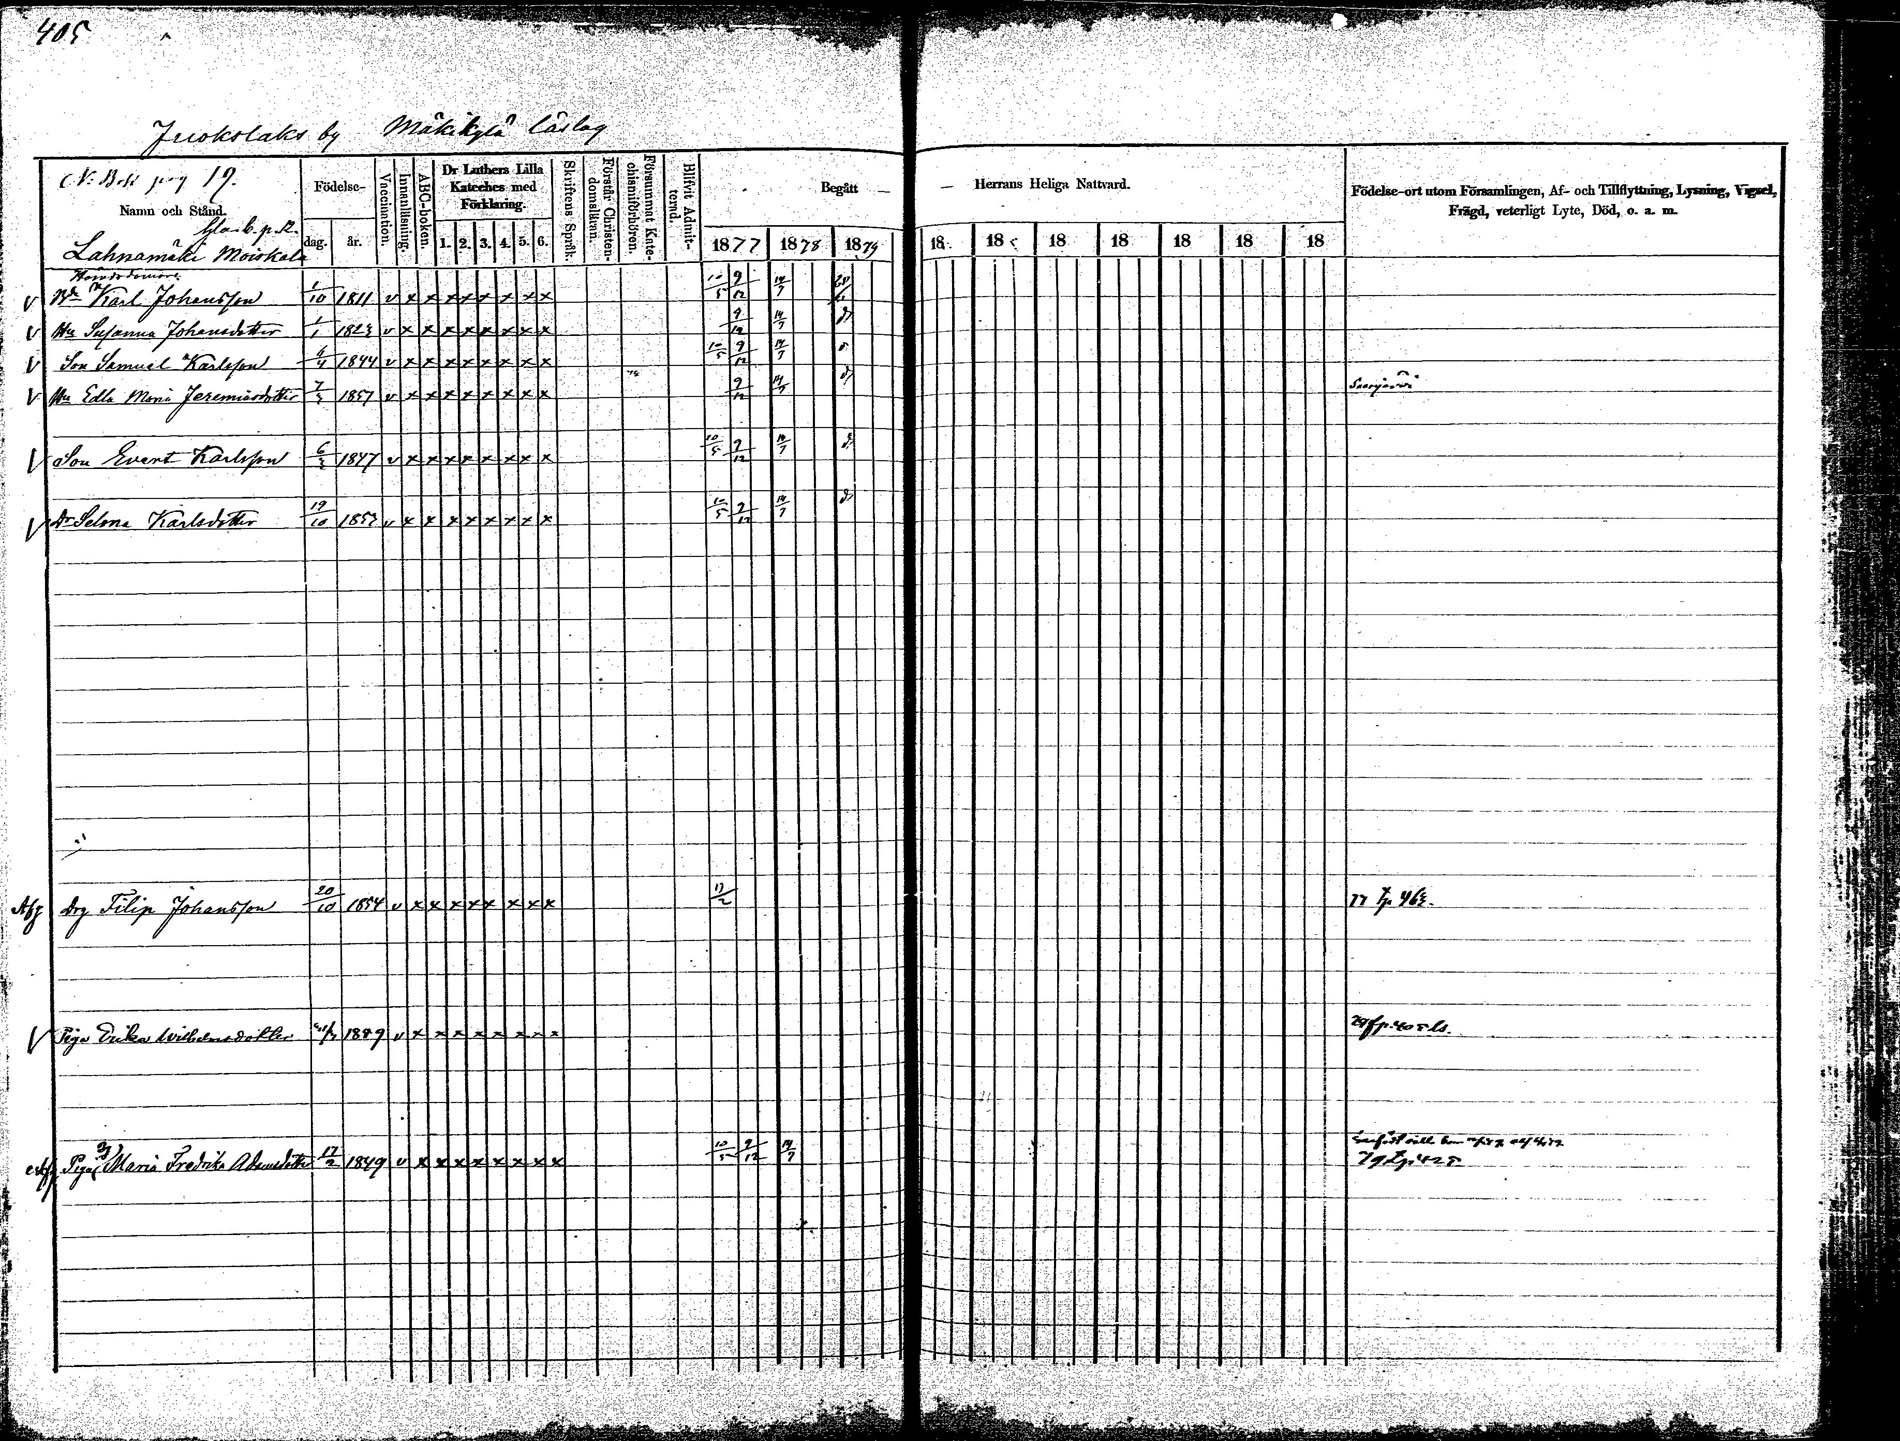 405
Juokslaks by Mäkikylä läslag
N. Bok pag 19.
Namn och Stånd.
Gla. b. p. 12.
Lahnamäki Moiskala
Födelse-
dag. år.
Vaccination.
Innanläsning.
ABC-boken.
Dr Luthers Lilla Kateches med Förklaring.
1. 2. 3. 4. 5. 6.
Skriftens Språk.
Förstår Christendomsläran.
Försummat Katechismiförhören.
Blifvit Admitterad.
Begått — — Herrans Heliga Nattvard.
1877 1878 1879 18 18 18 18 18 18 18
Födelse-ort utom Församlingen, Af- och Tillflyttning, Lysning, Vigsel,
Frägd, veterligt Lyte, Död, o. a. m.
v Karl Johansson 1/10 1811 v x x x x x x x x 10/5 9/12 14/7
v Hu Susanna Johansdotter 1/1 1823 v x x x x x x x x 9/12 14/7
v Son Samuel Karlsson 4/4 1844 v x x x x x x x x 10/5 9/12 14/7
v Hu Edla Maria Jeremiasdotter 1857 v x x x x x x x x 9/12 14/7 Saarijärvi
v Son Evert Karlsson 1847 v x x x x x x x x 10/5 9/12 14/7
v Dr Selma Karlsdotter 19/10 1853 v x x x x x x x x 10/5 9/12 14/7
Afg Drg Filip Johansson 20/10 1854 v x x x x x x x x 11/2 77 fp 463.
v Piga Erika Wilhelmsdotter 1889 v x x x x x x x x
Afg Piga Maria Fredrika Adamsdotter 17/2 1849 v x x x x x x x x 10/5 9/12 14/7
79 fp 425